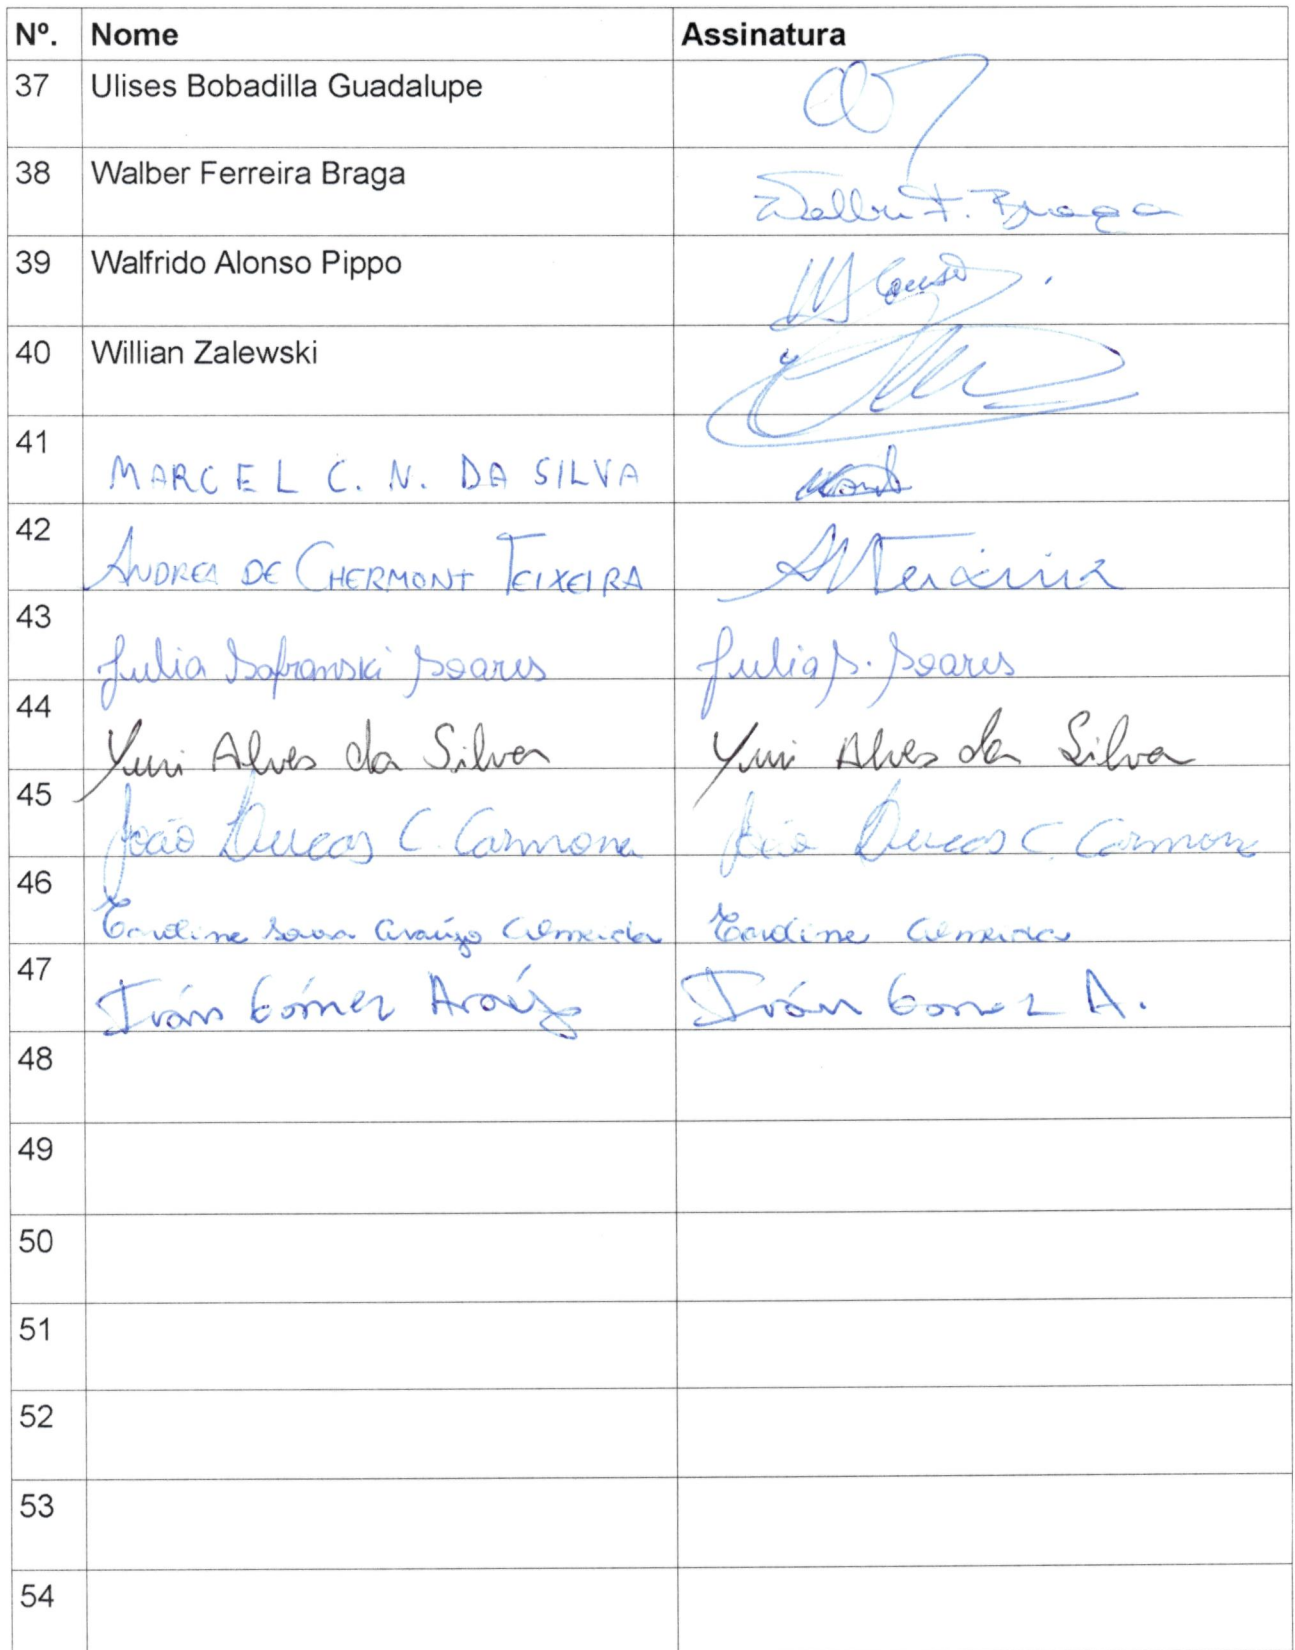 Nº. Nome Assinatura
37 Ulises Bobadilla Guadalupe
38 Walber Ferreira Braga Walber F. Braga
39 Walfrido Alonso Pippo
40 Willian Zalewski
41 MARCEL C. N. DA SILVA
42 ANDREA DE CHERMONT TEIXEIRA Teixeira
43 Julia Safranski Soares Julia S. Soares
44 Yuri Alves da Silva Yuri Alves da Silva
45 João Lucas C. Carmona João Lucas C. Carmona
46 Araújo Almeida Almeida
47 Iván Gómez Araújo Iván Gomez A.
48
49
50
51
52
53
54